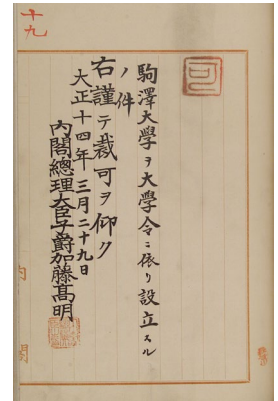 十九
可
駒澤大學ヲ大學令ニ依リ設立スル
ノ件
右謹テ裁可ヲ仰ク
大正十四年三月二十九日
内閣總理大臣子爵加藤高明
内閣